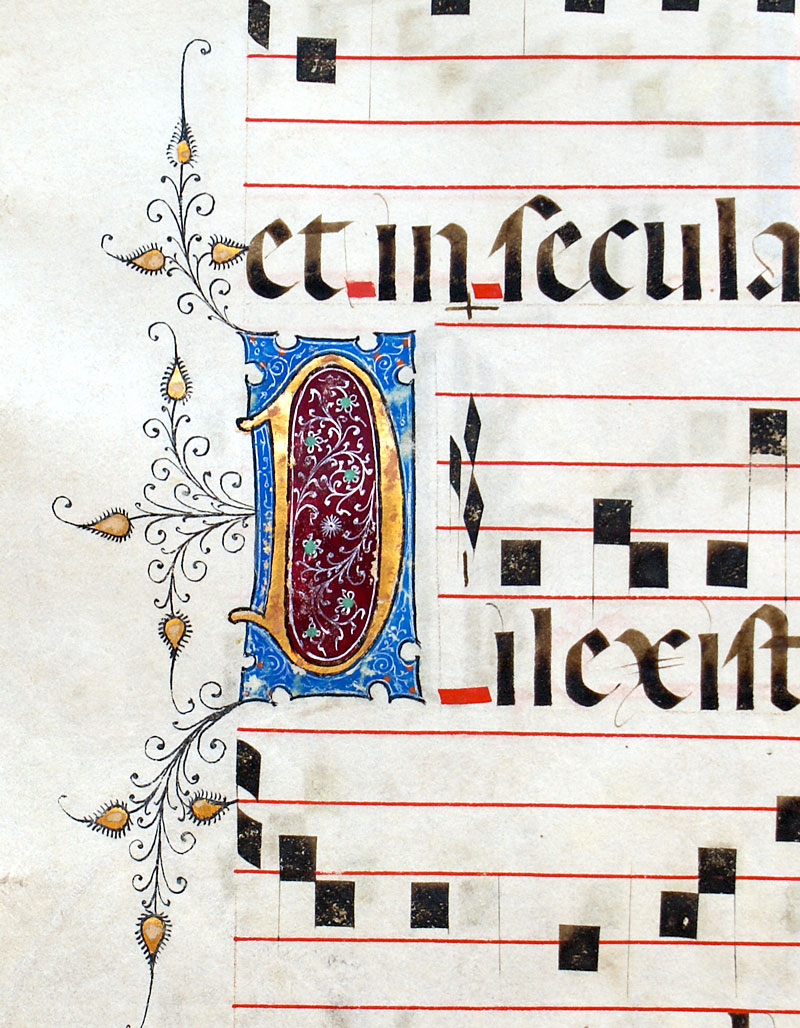 et in secula
Dilexist